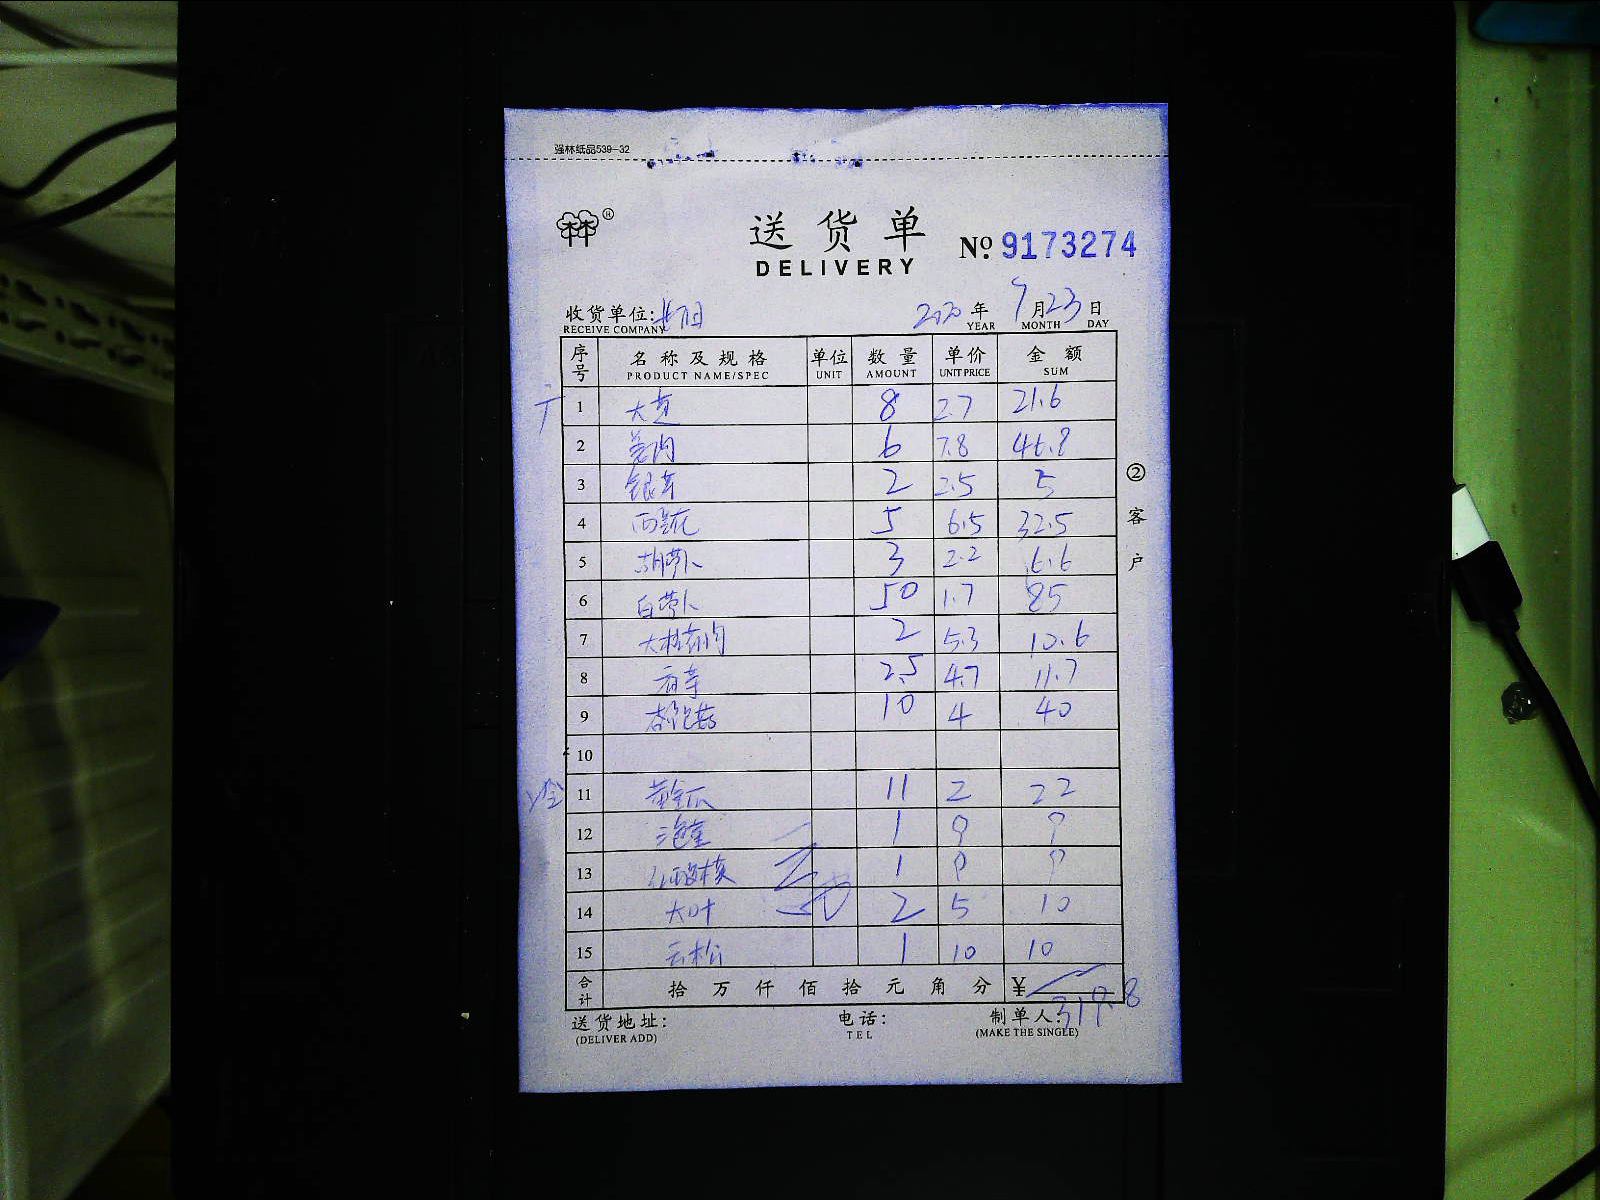 强林纸品539-32
林 ®
送货单
DELIVERY
№ 9173274
收货单位: 2020年9月23日
RECEIVE COMPANY YEAR MONTH DAY
序号 名称及规格 单位 数量 单价 金额
PRODUCT NAME/SPEC UNIT AMOUNT UNIT PRICE SUM
1 大葱 8 2.7 21.6
2 姜肉 6 7.8 46.8
3 银芽 2 2.5 5
4 西芹 5 6.5 32.5
5 胡萝卜 3 2.2 6.6
6 白萝卜 50 1.7 85
7 2 5.3 10.6
8 香芋 2.5 4.7 11.7
9 杏鲍菇 10 4 40
10
11 黄金瓜 11 2 22
12 1 9 9
13 1 9 9
14 大叶 2 5 10
15 云松 1 10 10
合计 拾万仟佰拾元角分 ¥
319.8
②客户
送货地址: 电话: 制单人:
(DELIVER ADD) TEL (MAKE THE SINGLE)